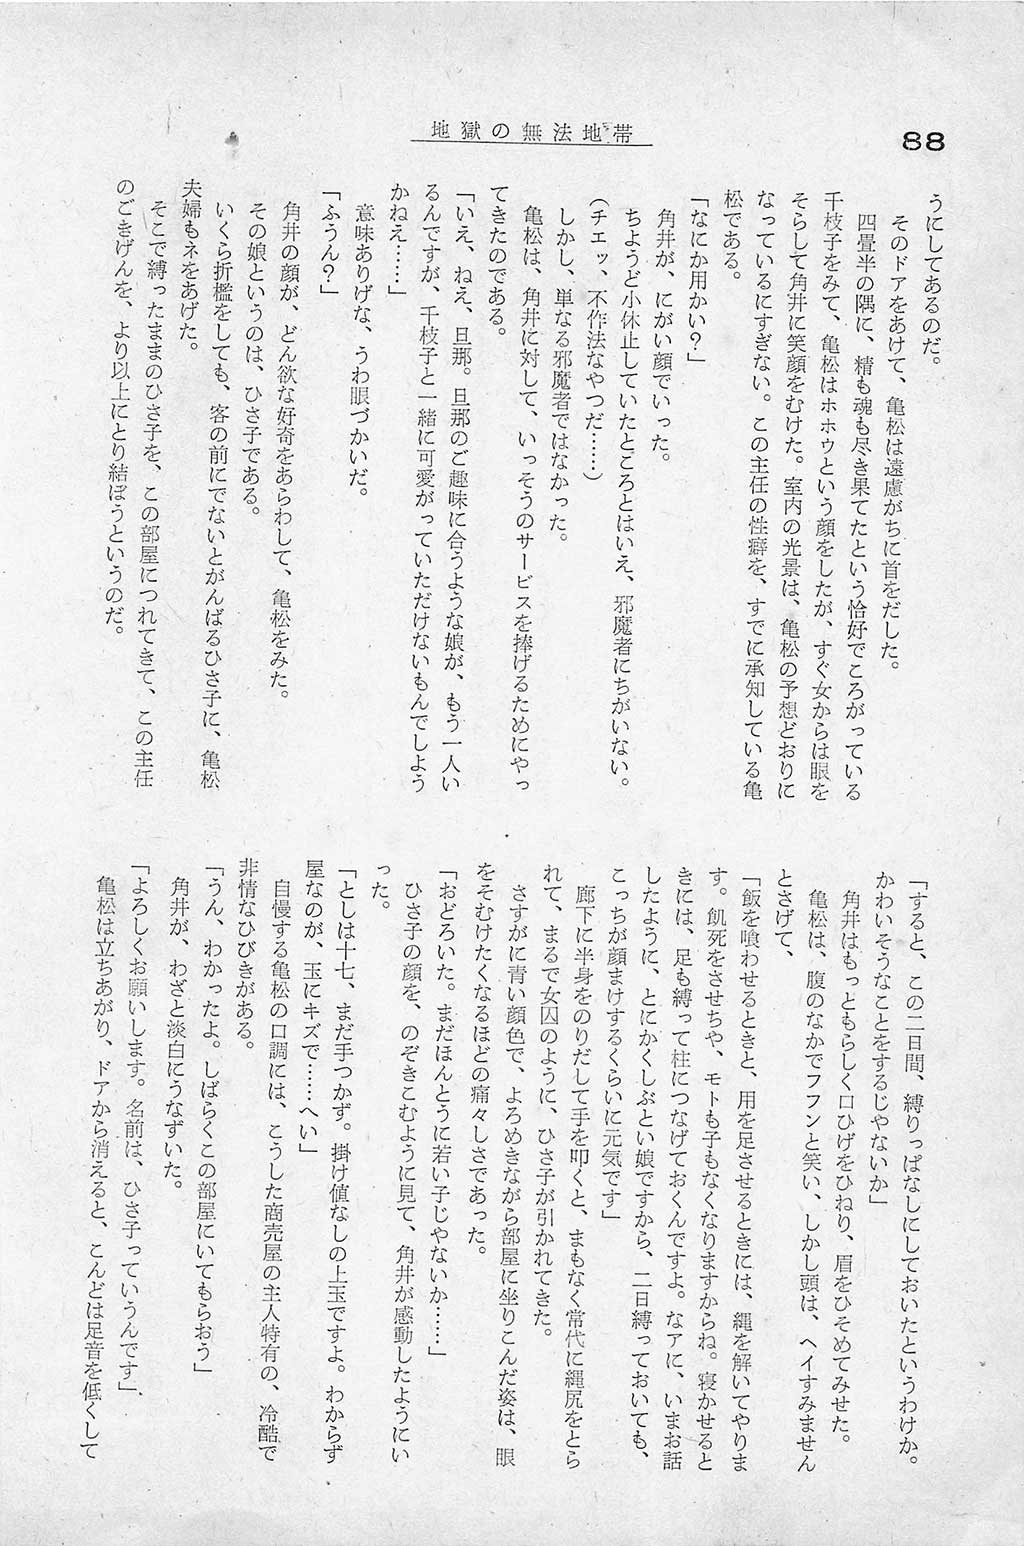 88
地獄の無法地帯
うにしてあるのだ。
そのドアをあけて、亀松は遠慮がちに首をだした。
四畳半の隅に、精も魂も尽き果てたという恰好でころがっている
千枝子をみて、亀松はホホウという顔をしたが、すぐ女からは眼を
そらして角井に笑顔をむけた。室内の光景は、亀松の予想どおりに
なっているにすぎない。この主任の性癖を、すでに承知している亀
松である。
「なにか用かい？」
角井が、にがい顔でいった。
ちようど小休止していたところとはいえ、邪魔者にちがいない。
（チェッ、不作法なやつだ……）
しかし、単なる邪魔者ではなかった。
亀松は、角井に対して、いっそうのサービスを捧げるためにやっ
てきたのである。
「いえ、ねえ、旦那。旦那のご趣味に合うような娘が、もう一人い
るんですが、千枝子と一緒に可愛がっていただけないもんでしよう
かねえ……」
意味ありげな、うわ眼づかいだ。
「ふうん？」
角井の顔が、どん欲な好奇をあらわして、亀松をみた。
その娘というのは、ひさ子である。
いくら折檻をしても、客の前にでないとがんばるひさ子に、亀松
夫婦もネをあげた。
そこで縛ったままのひさ子を、この部屋につれてきて、この主任
のごきげんを、より以上にとり結ぼうというのだ。
「すると、この二日間、縛りっぱなしにしておいたというわけか。
かわいそうなことをするじゃないか」
角井はもっともらしく口ひげをひねり、眉をひそめてみせた。
亀松は、腹のなかでフフンと笑い、しかし頭は、ヘイすみません
とさげて、
「飯を喰わせるときと、用を足させるときには、縄を解いてやりま
す。飢死をさせちや、モトも子もなくなりますからね。寝かせると
きには、足も縛って柱につなげておくんですよ。なアに、いまお話
したように、とにかくしぶとい娘ですから、二日縛っておいても、
こっちが顔まけするくらいに元気です」
廊下に半身をのりだして手を叩くと、まもなく常代に縄尻をとら
れて、まるで女囚のように、ひさ子が引かれてきた。
さすがに青い顔色で、よろめきながら部屋に坐りこんだ姿は、眼
をそむけたくなるほどの痛々しさであった。
「おどろいた。まだほんとうに若い子じゃないか……」
ひさ子の顔を、のぞきこむように見て、角井が感動したようにい
った。
「としは十七、まだ手つかず。掛け値なしの上玉ですよ。わからず
屋なのが、玉にキズで……へい」
自慢する亀松の口調には、こうした商売屋の主人特有の、冷酷で
非情なひびきがある。
「うん、わかったよ。しばらくこの部屋にいてもらおう」
角井が、わざと淡白にうなずいた。
「よろしくお願いします。名前は、ひさ子っていうんです」
亀松は立ちあがり、ドアから消えると、こんどは足音を低くして